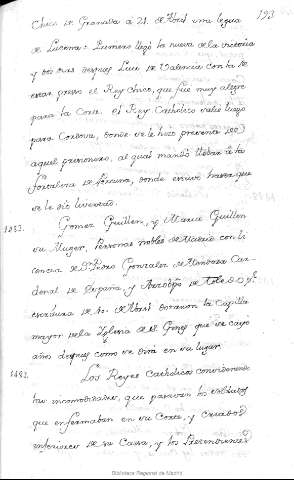 193
Chico de Granada a 21 de Abril una legua
de Lucena: Primero llegó la nueva de la victoria
y dos dias despues Luis de Valencia con la de
estar preso el Rey Chico, que fue muy alegre
para la Corte. el Rey Catholico salió luego
para Cordova, donde se le hizo presente de
aquel prisionero, al qual mandó llebar á la
fortaleza de Porcuna, donde estuvo hasta que
se le dió livertad.
1483. Gomez Guillen, y Maria Guillen
su Muger, Personas nobles de Madrid con li
cencia de Dn. Pedro Gonzalez de Mendoza Car
denal de España, y Arzobpo de Toledo, y
escritura de de Abril dotaron la Capilla
mayor de la Iglesia de Sn. Gines que se cayo
años despues como se dirá en su lugar.
1483. Los Reyes Catholicos considerando
las incomodidades, que pasavan los soldados
que enfermaban en su Corte, y Criados
inferiores de su Casa, y los Pretendientes
Biblioteca Regional de Madrid